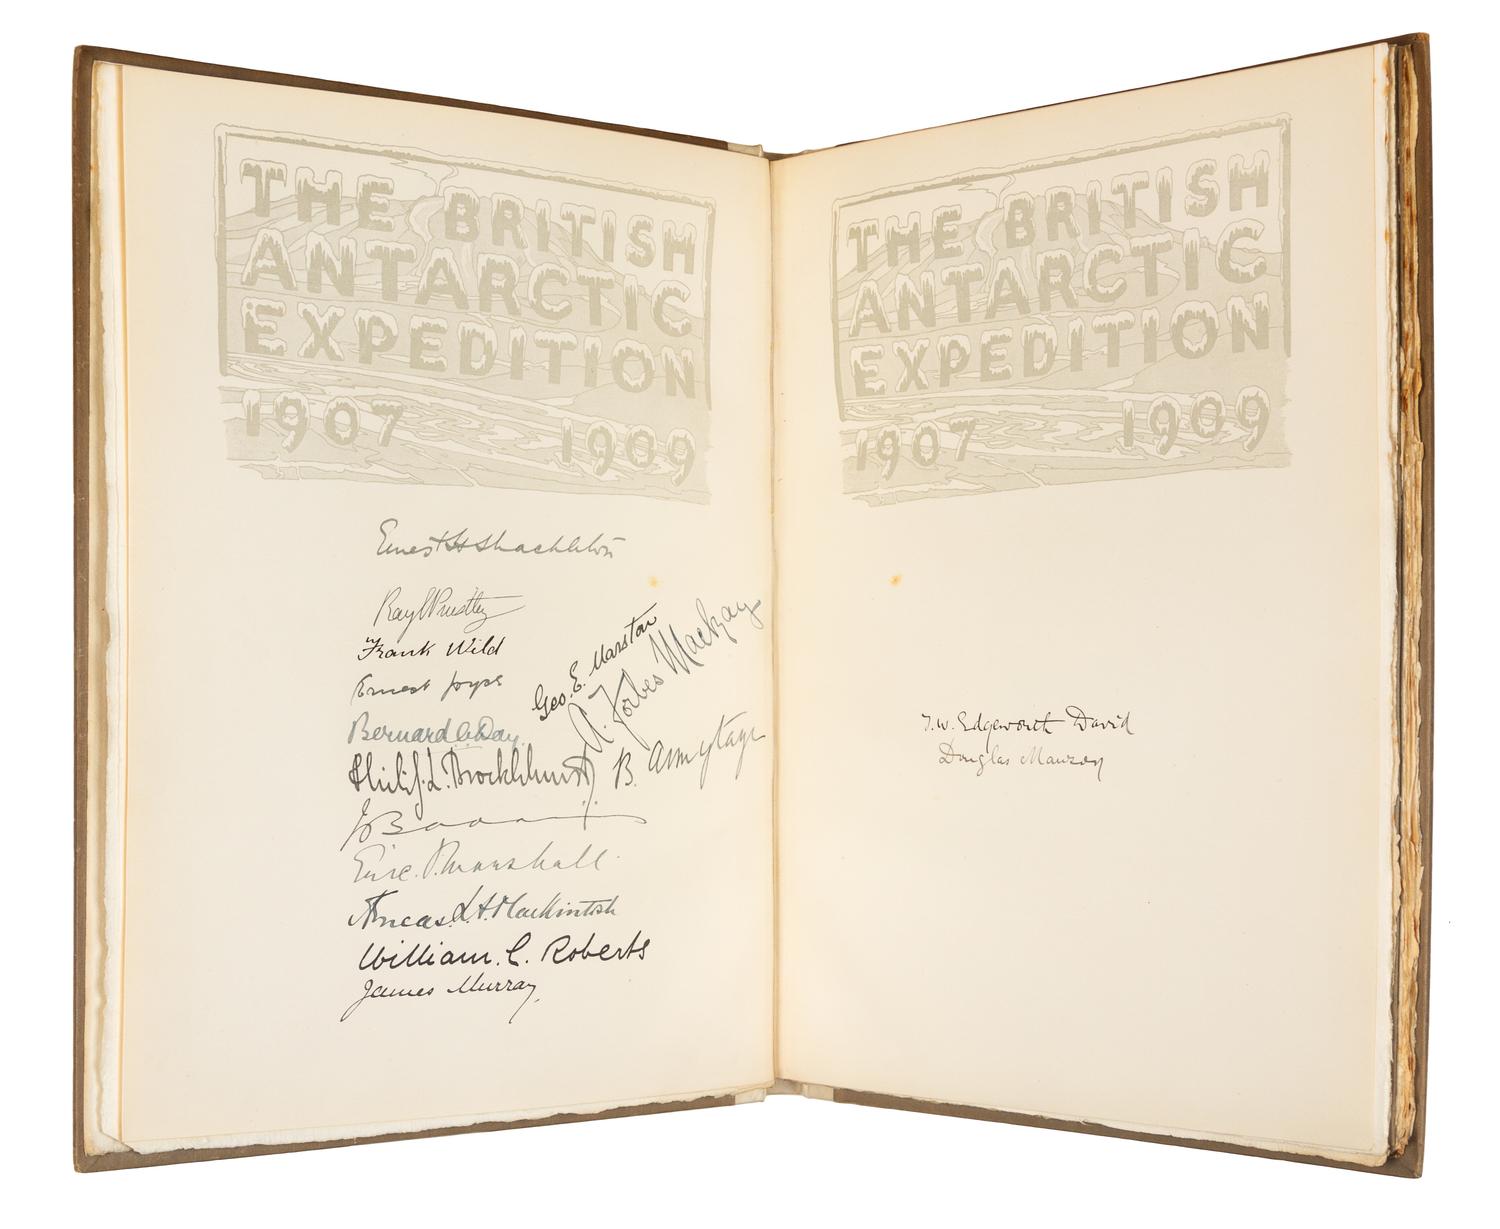 THE BRITISH
ANTARCTIC
EXPEDITION
1907 1909
Ernest H Shackleton
Raymond E Priestley
Frank Wild
Ernest Joyce
Geo. E. Marston
A. Forbes Mackay
Bernard C. Day
Philip L. Brocklehurst
B. Armytage
Eric. S. Marshall
Aeneas. L. A. Mackintosh
William. C. Roberts
James Murray
THE BRITISH
ANTARCTIC
EXPEDITION
1907 1909
T. W. Edgeworth David
Douglas Mawson